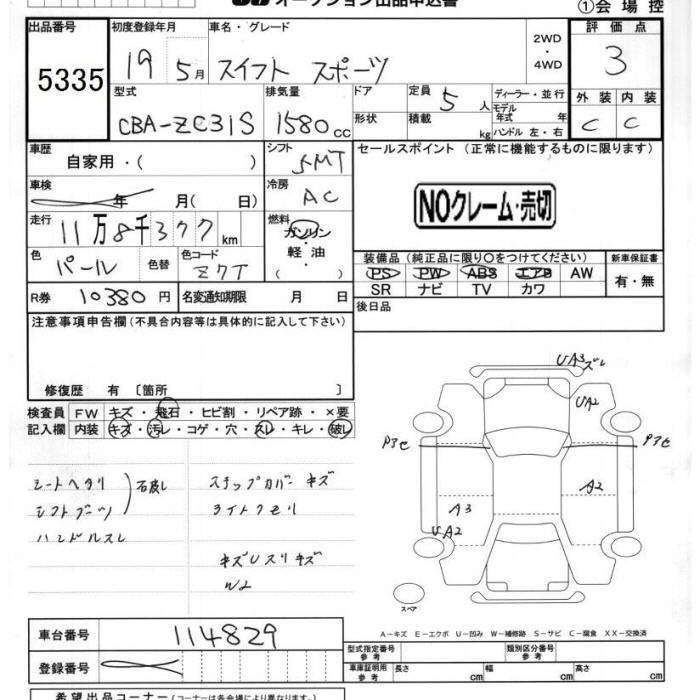 オークション出品申込書
①会場控
出品番号 初度登録年月 車名・グレード 2WD ・ 4WD 評価点
5335 19 5月 スイフト スポーツ 3
型式 排気量 ドア 定員 5 人 ディーラー・並行 外装 内装
CBA-ZC31S 1580 cc 形状 積載 kg モデル年式 年 ハンドル 左・右 C C
車歴 自家用・( ) シフト 5MT セールスポイント (正常に機能するものに限ります)
車検 年 月( 日) 冷房 AC
NOクレーム・売切
走行 11万8千377 km 燃料 ガソリン・軽油・( )
色 パール 色替 色コード Z7T
装備品 (純正品に限り○をつけてください) 新車保証書
PS PW ABS エアB AW 有・無
SR ナビ TV カワ
R券 10380 円 名変通知期限 月 日 後日品
注意事項申告欄 (不具合内容等は具体的に記入して下さい)
修復歴 有 〔箇所 〕
検査員 FW キズ・飛石・ヒビ割・リペア跡・×要
記入欄 内装 キズ・汚レ・コゲ・穴・スレ・キレ・破レ
シートヘタリ
シフトブーツ 破レ
ハンドルスレ
ステップカバー キズ
ライトクモリ
キズUスリキズ
W2
UA3ズレ
UA2
P3セ
P3セ
A2
A3
UA2
スペア
A-キズ E-エクボ U-凹み W-補修跡 S-サビ C-腐食 XX-交換済
車台番号 114829
登録番号
型式指定番号 参考 類別区分番号 参考
車庫証明用 参考 長さ cm 幅 cm 高さ cm
希望出品コーナー (コーナーは各会場により異なります。)